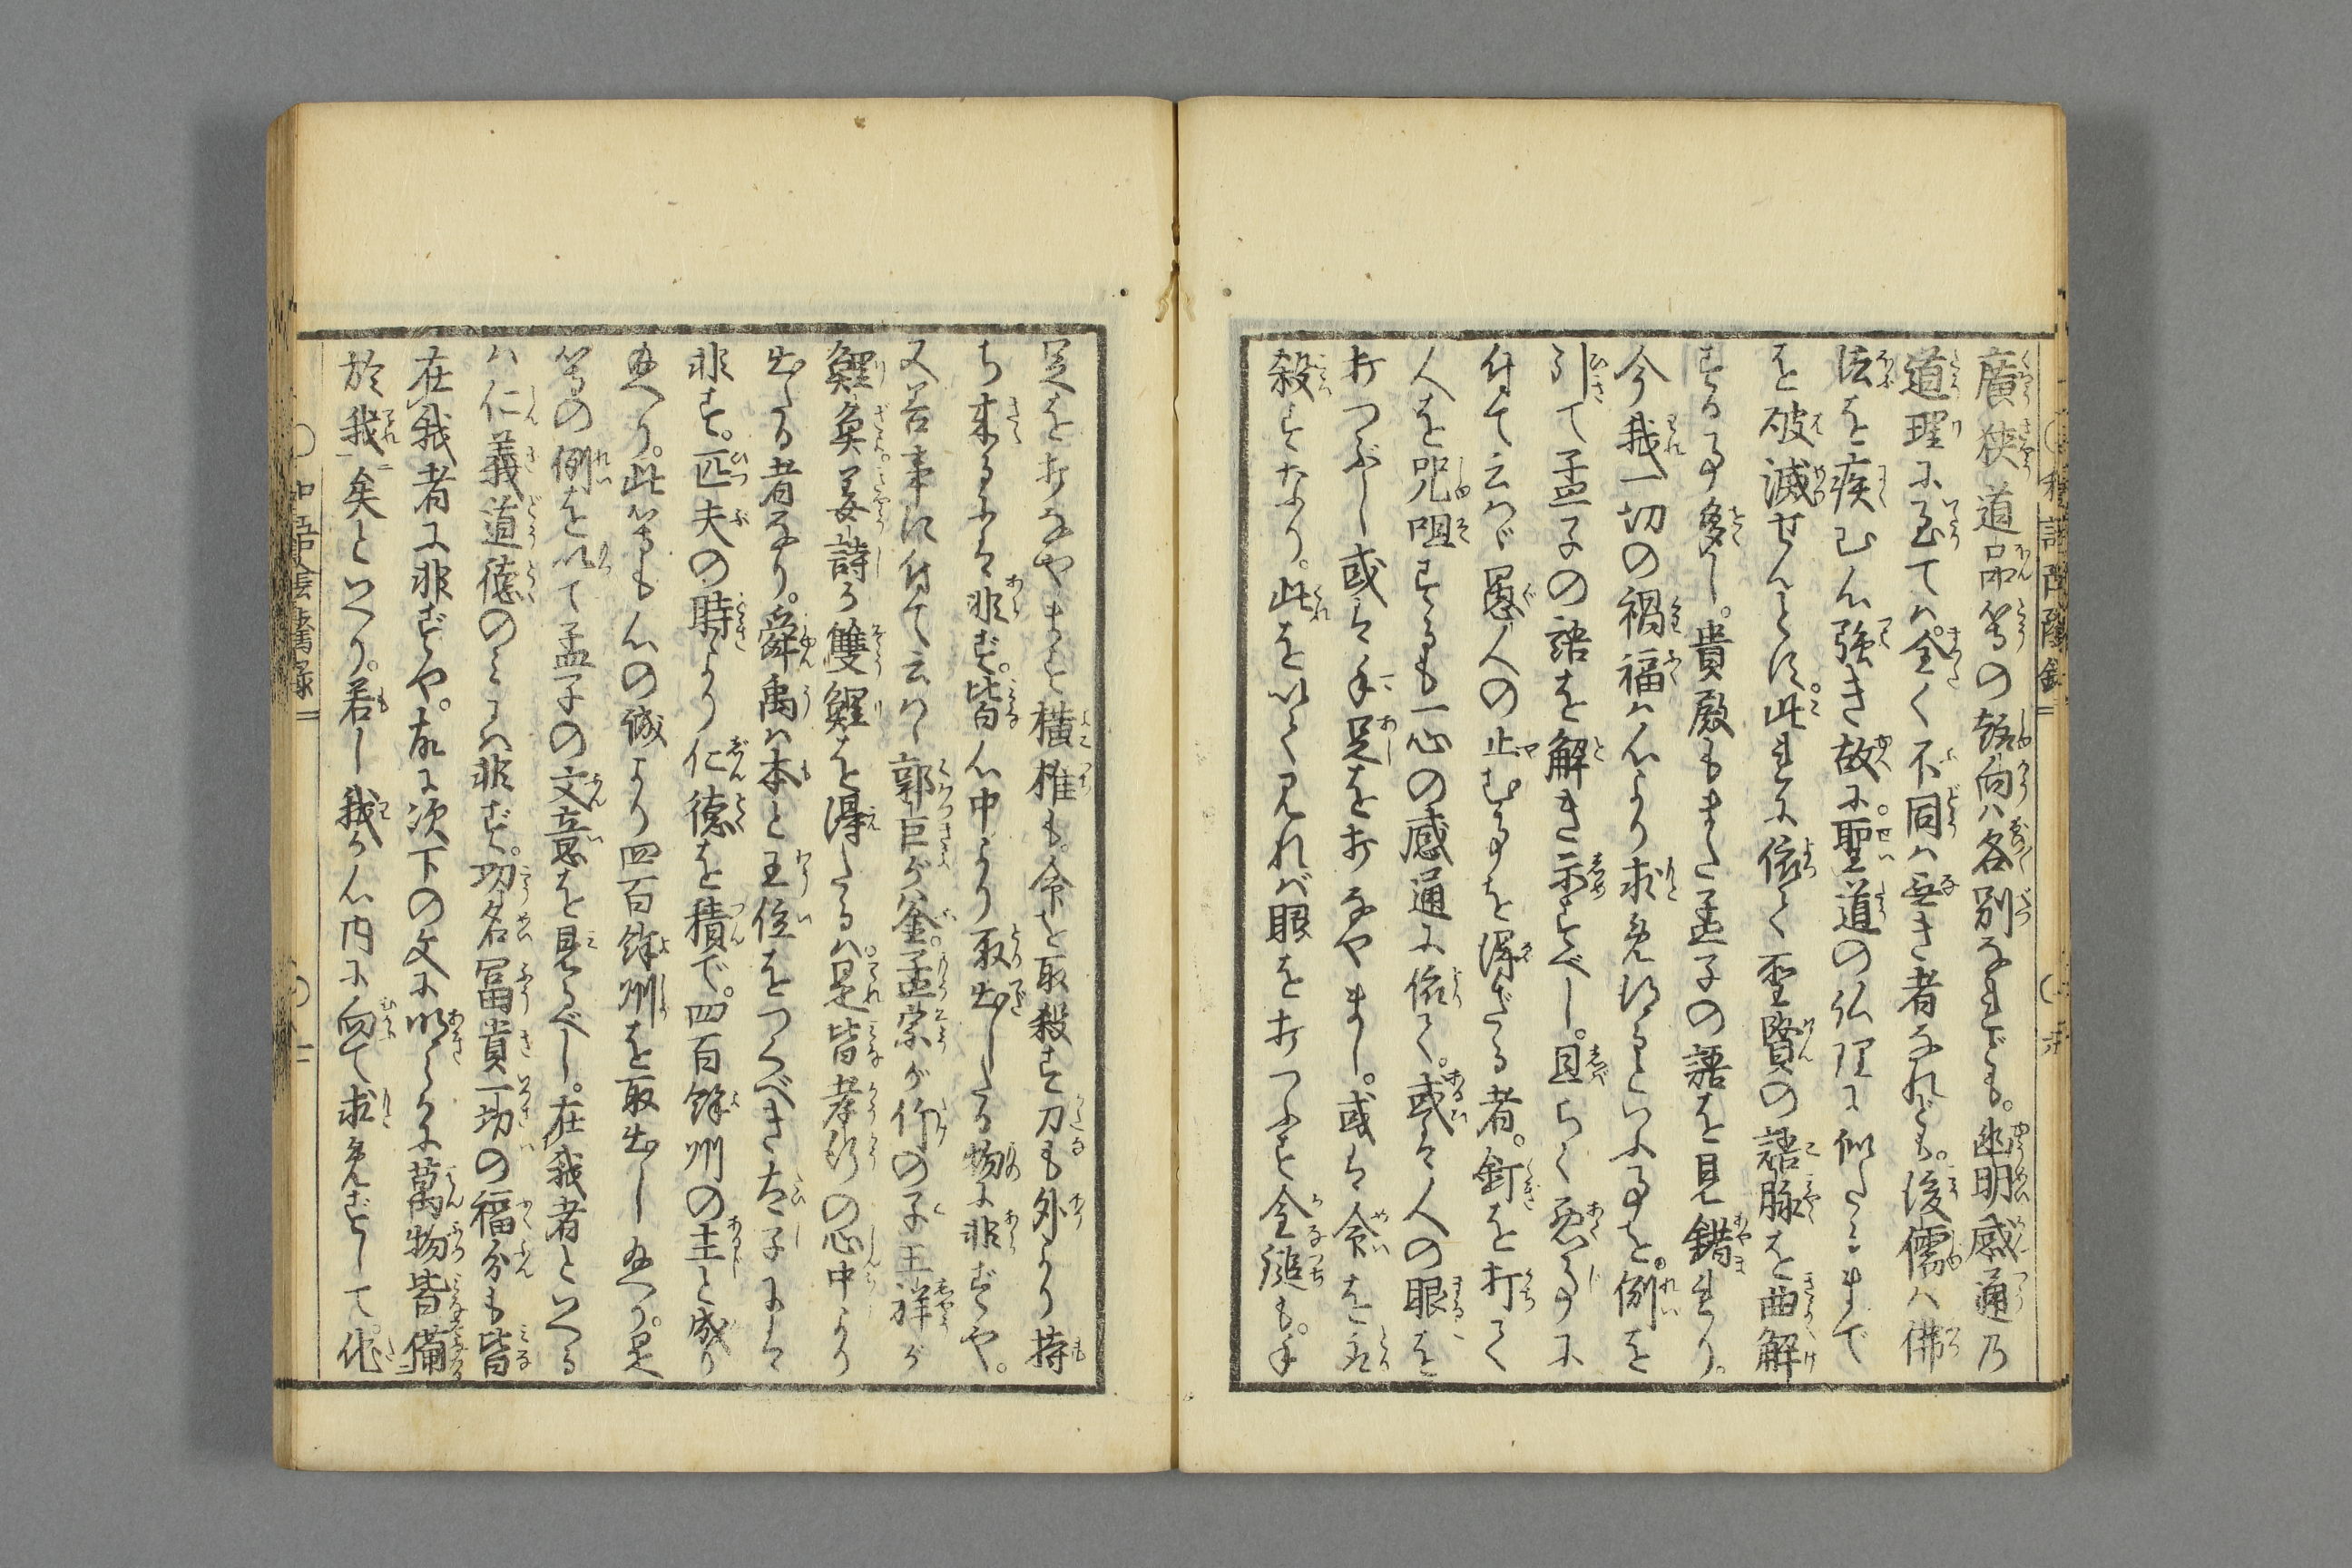 廣狭道品等の趣向ハ各別なれども。幽明感通乃
道理に至てハ全く不同ハ無き者なれども。後儒ハ佛
法を疾む心強き故に。聖道の仏理に似たるまで
を破滅せんとす。此れに依て聖賢の語脉を曲解
する事多し。貴殿もまた孟子の語を見錯れり。
今我一切の禍福ハ心より求め得るといふ事を。例を
引て孟子の語を解き示すべし。且らく悪事に
付て云ハヾ愚人の止む事を得ざる者。釘を打て
人を咒咀するも一心の感通に依て。或は人の眼を
打つぶし或は手足を打なやまし。或は命を取
殺すなり。此を以て見れば眼を打つぶす金鎚も。手
足を打なやます横椎も。命を取殺す刀も外より持
ち来るにも非ず。皆心中より取出したる物に非ずや。
又善事に付て云ハヾ郭巨が釜。孟宗が竹の子王祥が
鯉魚姜詩が雙鯉を得たるハ。是皆孝行の心中より
出たる者なり。舜禹ハ本と王位をつぐべき太子には
非ず。匹夫の時より仁德を積で。四百餘州の主と成り
玉へり。此等も心の誠より四百餘州を取出し玉へり。是
等の例を以て孟子の文意を見るべし。在我者といへる
ハ仁義道德のみにハ非ず。功名冨貴一切の福分も皆
在我者に非ずや。故に次下の文に明らかに萬物皆備
於我矣といへり。若し我が心内に向て求めずして。他